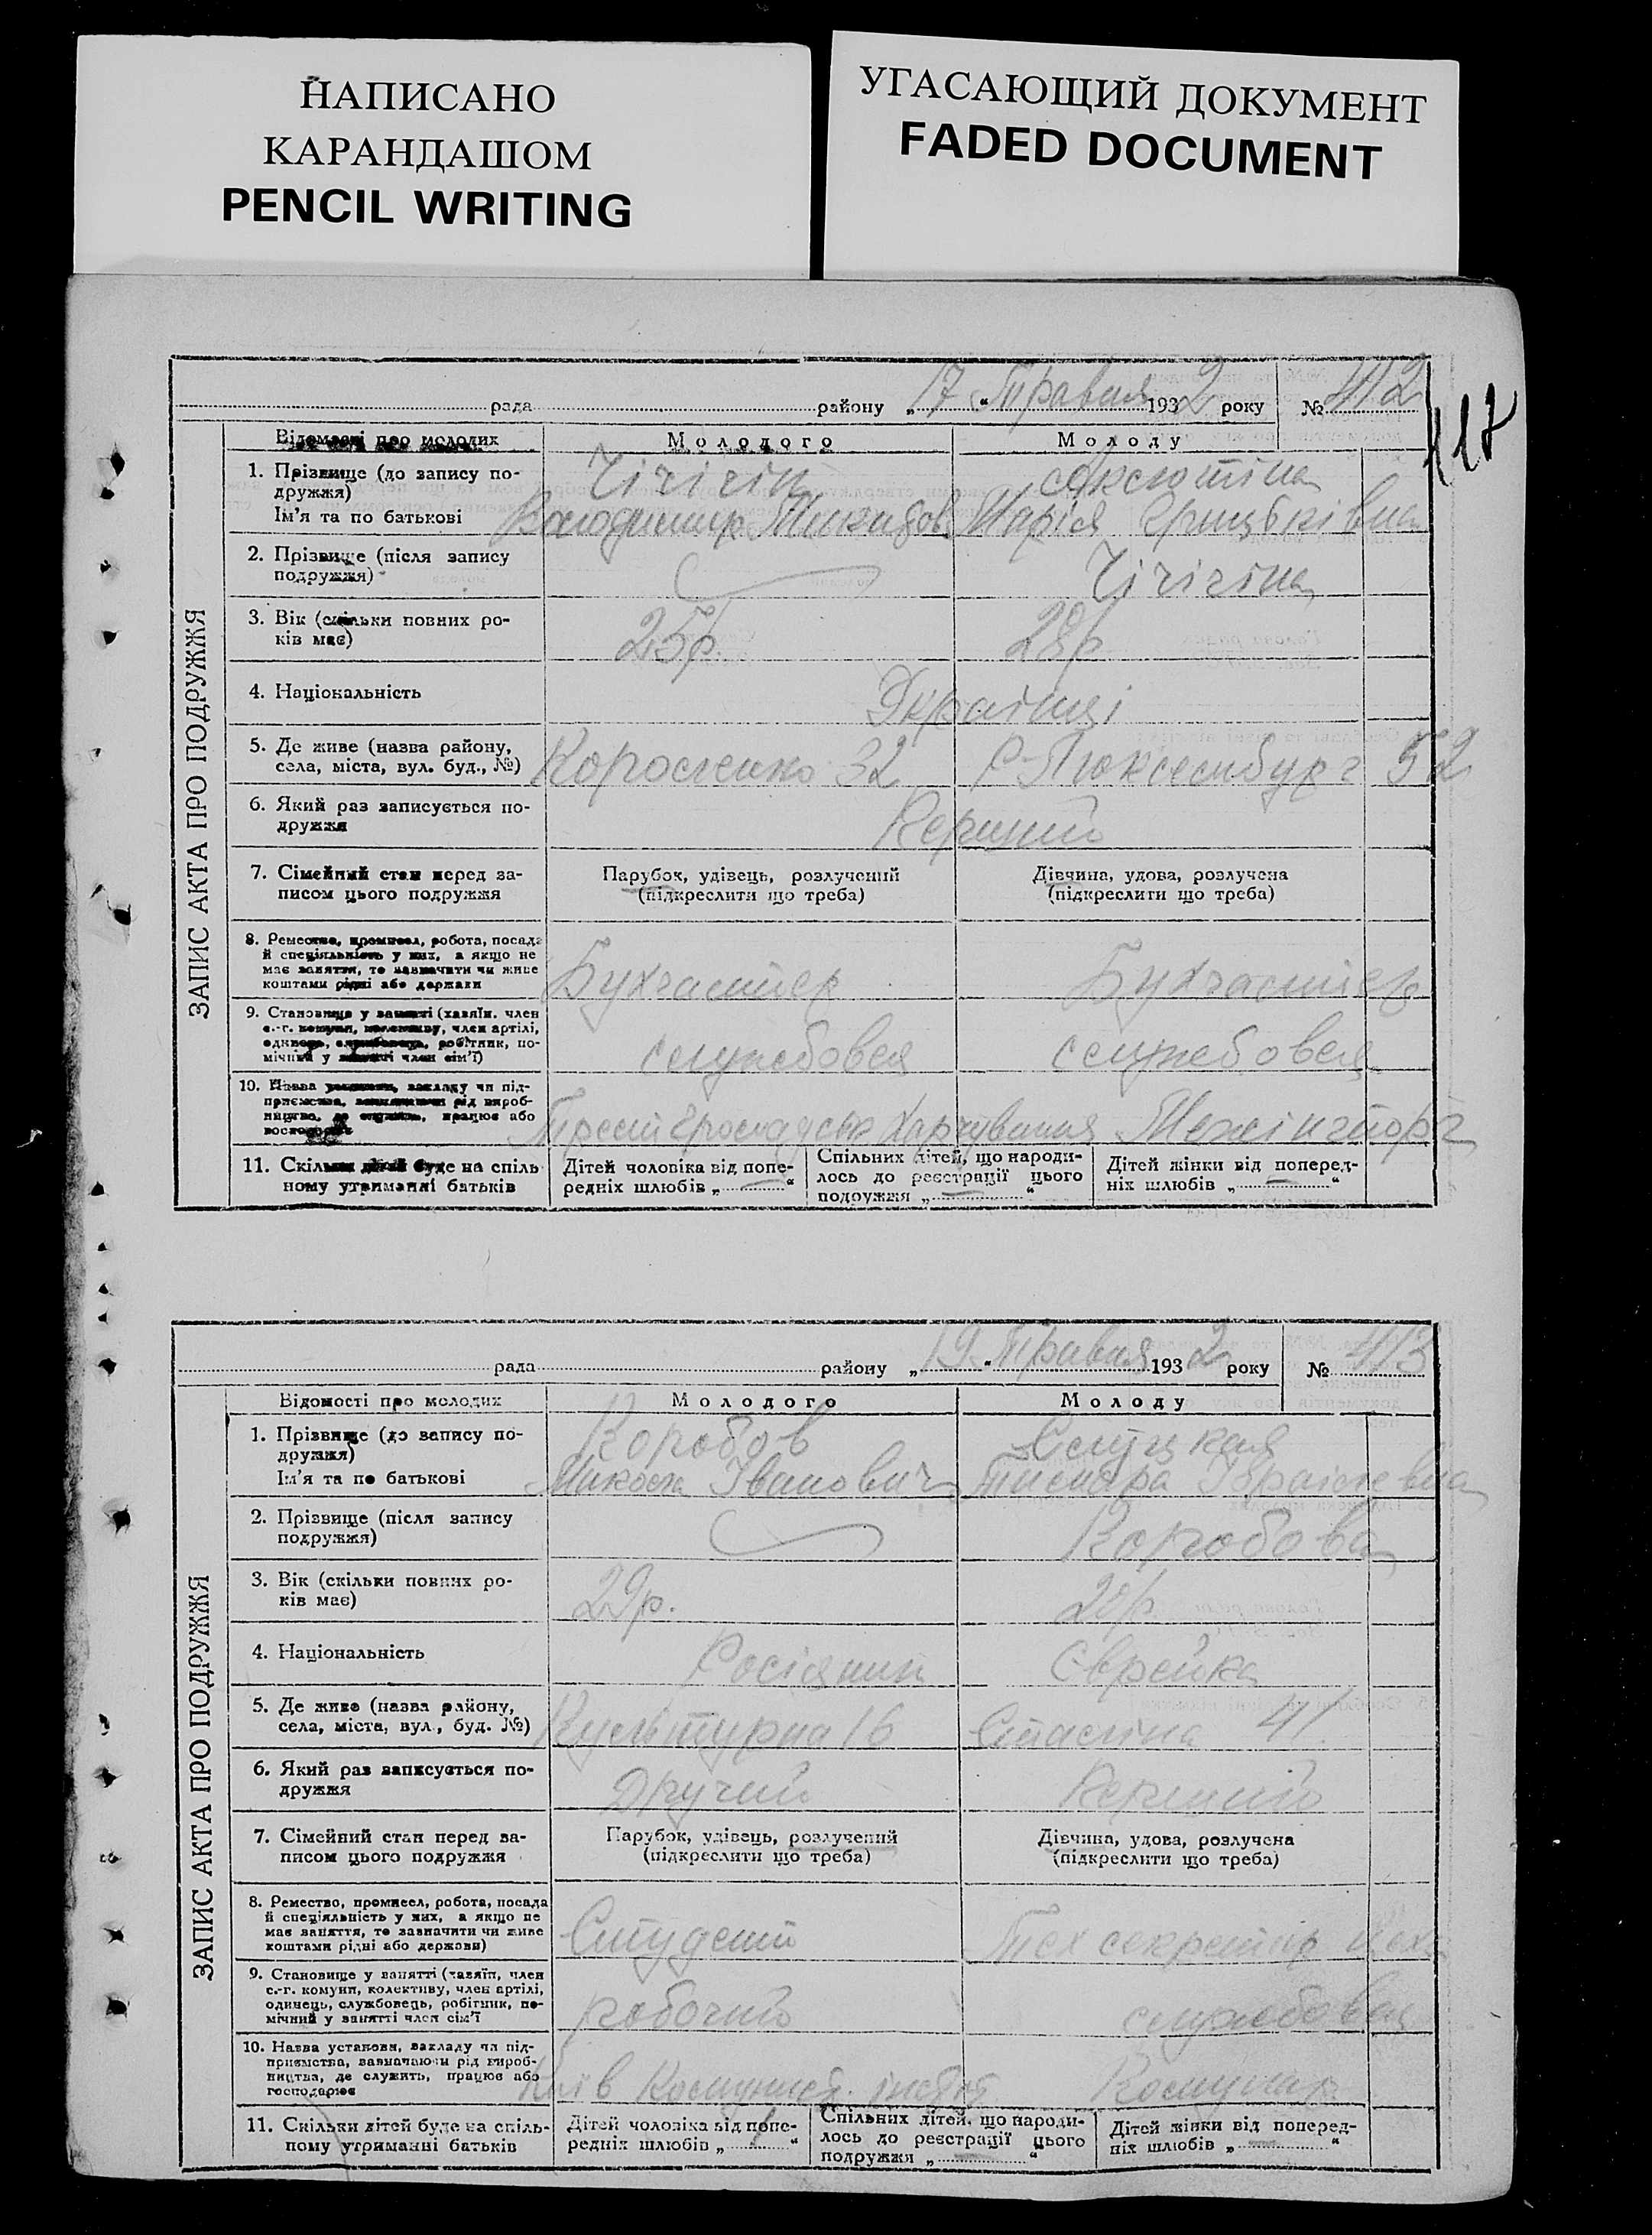 НАПИСАНО
КАРАНДАШОМ
PENCIL WRITING
УГАСАЮЩИЙ ДОКУМЕНТ
FADED DOCUMENT
рада району „17“ Травня 1932 року № 412
117
ЗАПИС АКТА ПРО ПОДРУЖЖЯ
Відомості про молодих Молодого Молоду
1. Прізвище (до запису по-
дружжя) Чічігін Аксютіна
Ім'я та по батькові Володимир Марія Грицьківна
2. Прізвище (після запису
подружжя) Чічігіна
3. Вік (скільки повних ро-
ків має) 25р. 28р
4. Національність Українці
5. Де живе (назва району,
села, міста, вул. буд., №) Короленко 32 Р-Люксембург 52
6. Який раз записується по-
дружжя Перший
7. Сімейний стан перед за-
писом цього подружжя
Парубок, удівець, розлучений
(підкреслити що треба)
Дівчина, удова, розлучена
(підкреслити що треба)
8. Ремество, промисел, робота, посада
й спеціяльність у них, а якщо не
має заняття, то зазначити чи живе
коштами рідні або держави Бухгалтер Бухгалтер
9. Становище у занятті (хазяїн, член
с.-г. комуни, колективу, член артілі,
одинець, службовець, робітник, по-
мічний у занятті член сім'ї) службовец службовец
10. Назва установи, закладу чи під-
приємства, зазначаючи рід вироб-
ництва, де служить, працює або
господарює Трест Громадське Харчування
11. Скільки дітей буде на спіль
ному утриманні батьків
Дітей чоловіка від попе-
редніх шлюбів „—“
Спільних дітей, що народи-
лось до реєстрації цього
подружжя „—“
Дітей жінки від поперед-
ніх шлюбів „—“
рада району „19“ Травня 1932 року № 413
ЗАПИС АКТА ПРО ПОДРУЖЖЯ
Відомості про молодих Молодого Молоду
1. Прізвище (до запису по-
дружжя) Коробов Слуцкая
Ім'я та по батькові Микола Іванович
2. Прізвище (після запису
подружжя) Коробова
3. Вік (скільки повних ро-
ків має) 29р. 28р
4. Національність Росіянин Єврейка
5. Де живе (назва району,
села, міста, вул., буд. №) Культурна 16 Сталіна 41
6. Який раз записується по-
дружжя Другий Перший
7. Сімейний стан перед за-
писом цього подружжя
Парубок, удівець, розлучений
(підкреслити що треба)
Дівчина, удова, розлучена
(підкреслити що треба)
8. Ремество, промисел, робота, посада
й спеціяльність у них, а якщо не
має заняття, то зазначити чи живе
коштами рідні або держави) Студент Тех секретар
9. Становище у занятті (хазяїн, член
с.-г. комуни, колективу, член артілі,
одинець, службовець, робітник, по-
мічний у занятті член сім'ї робочий службовец
10. Назва установи, закладу чи під-
приємства, зазначаючи рід вироб-
ництва, де служить, працює або
господарює Київ Комунист. Комунар
11. Скільки дітей буде на спіль-
ному утриманні батьків
Дітей чоловіка від попе-
редніх шлюбів „ “
Спільних дітей, що народи-
лось до реєстрації цього
подружжя „—“
Дітей жінки від поперед-
ніх шлюбів „—“